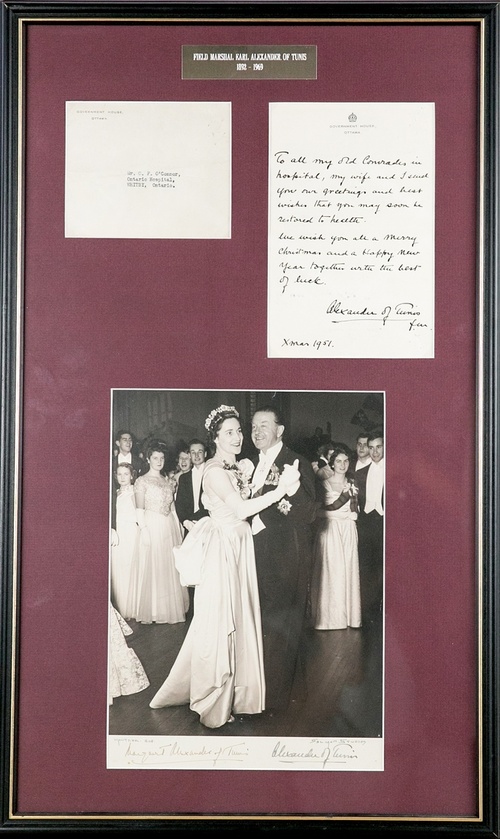 FIELD MARSHAL EARL ALEXANDER OF TUNIS
1892 - 1969
GOVERNMENT HOUSE
OTTAWA
O'Connor,
Ontario Hospital,
WHITBY, Ontario.
GOVERNMENT HOUSE,
OTTAWA
To all my old Comrades in
hospital, my wife and I send
you our greetings and best
wishes that you may soon be
restored to health.
We wish you all a Merry
Christmas and a Happy New
Year together with the best
of luck.
Alexander of Tunis
Xmas 1951.
Margaret Alexander of Tunis
Alexander of Tunis